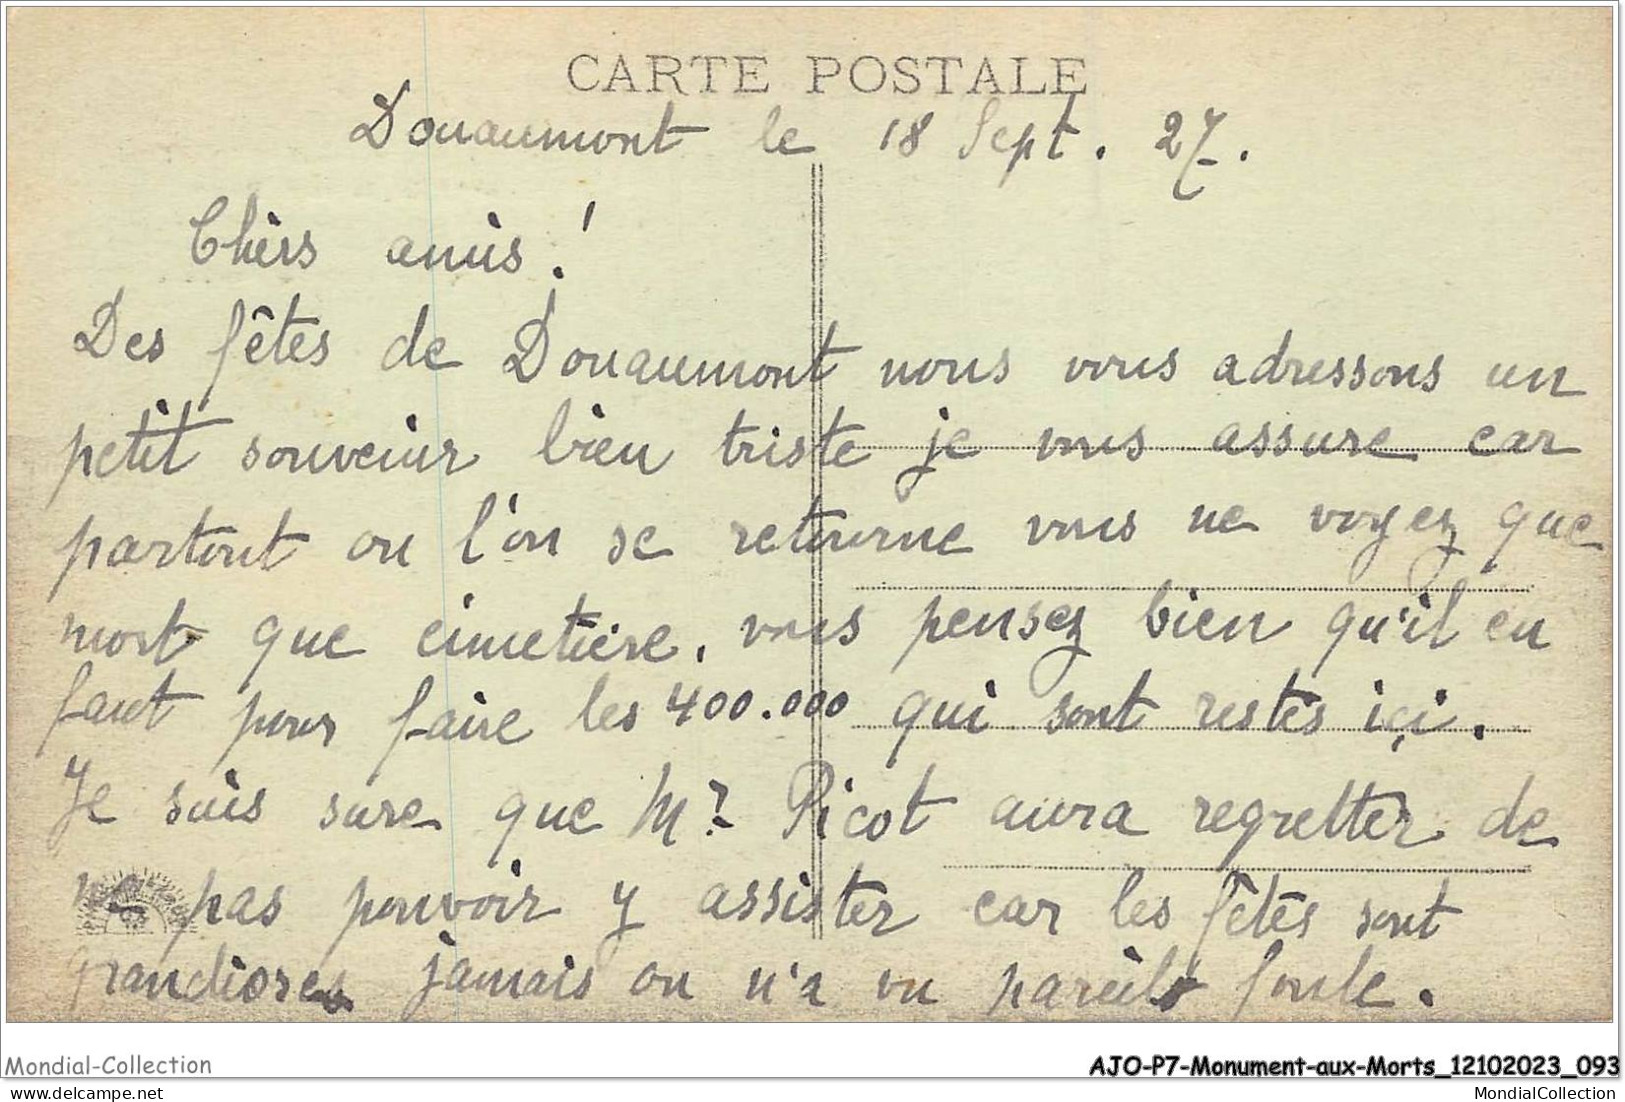 CARTE POSTALE
Douaumont le 18 Sept. 27.
Chèrs amis!
Des fêtes de Douaumont nous vous adressons un
petit souveiur bien triste je vous assure car
partout ou l'on se retourne vous ne voyez que
mort que cimetière. vous pensez bien qu'il en
faut pour faire les 400.000 qui sont restés içi.
Je suis sure que Mr Picot aura regretter de
ne pas pouvoir y assister car les fêtes sont
grandioses jamais on n'a vu pareils foule.
Mondial-Collection
AJO-P7-Monument-aux-Morts_12102023_093
par delcampe.net
MondialCollection